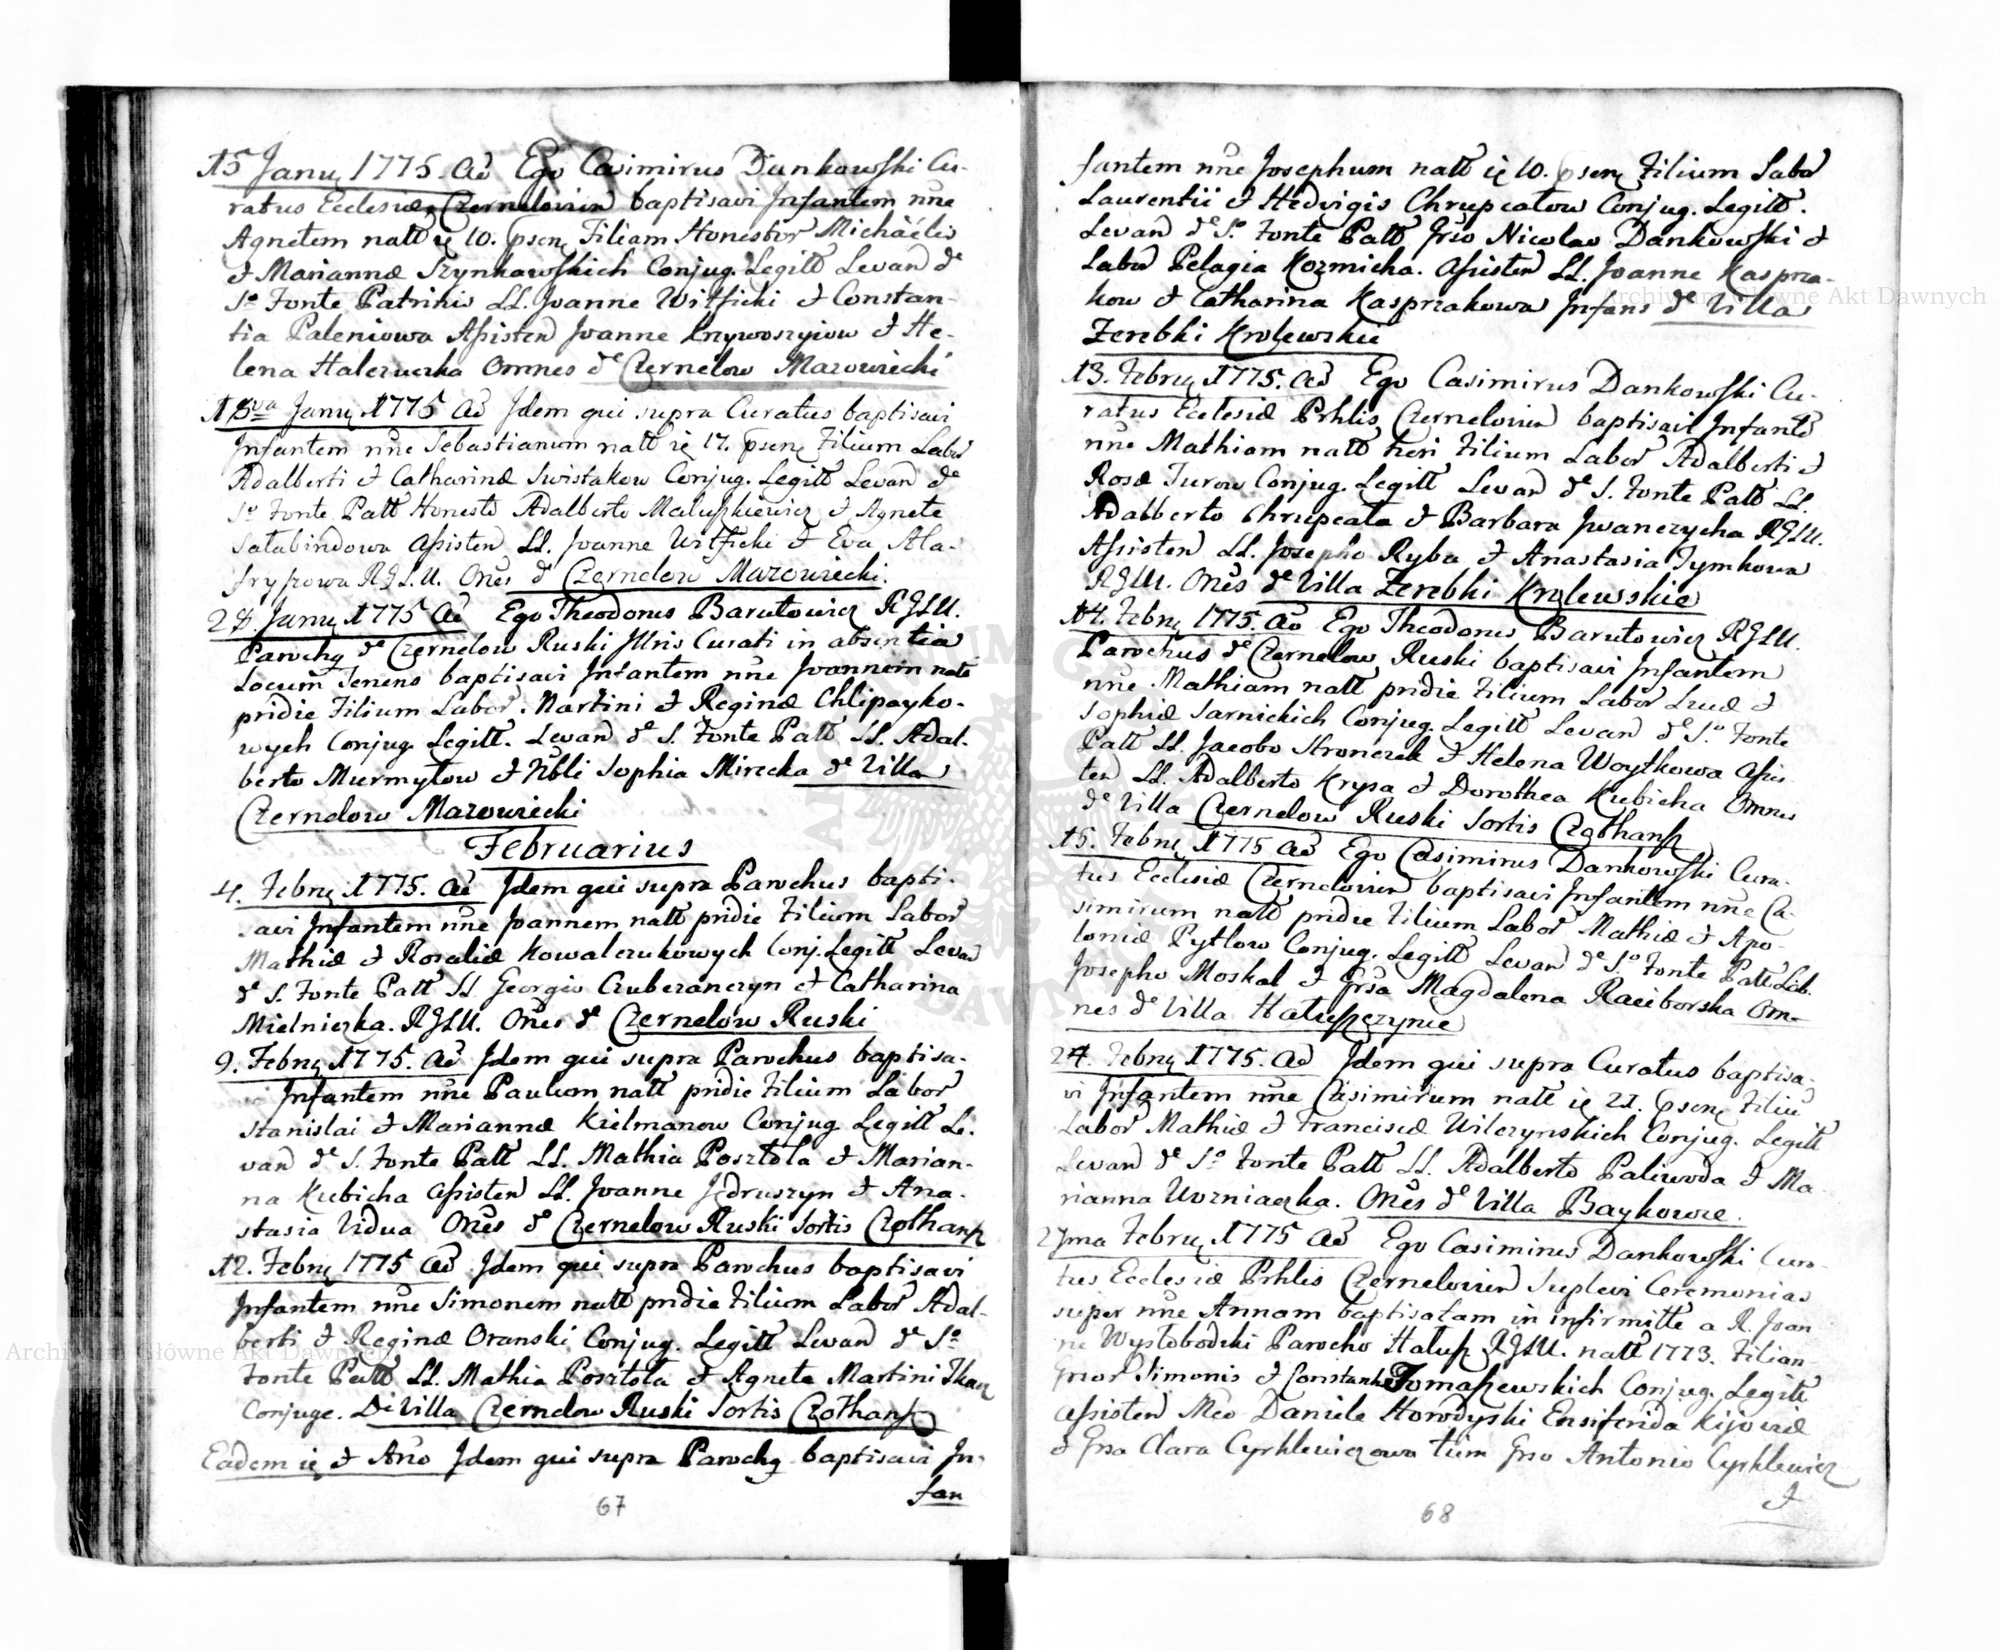 15 Janu 1775. Ao Ego Casimirus Dankowski Cu-
ratus Ecclesiæ Czernelovien baptisavi Infantem nne
Agnetem natt ie 10. psen Filiam Honestor Michaëlis
et Mariannæ Szynkawskich Conjug. Legitt Levan de
So Fonte Patrinis LL. Joanne Witficki et Constan-
tia Paleniowa Assisten Joanne Krzywoszyiow et He-
lena Halczuczka Omnes de Czernelow Mazowiecki
18va Janu 1775 Ao Idem qui supra Curatus baptisavi
Infantem nne Sebastianum natt ie 17. psen Filium Labor
Adalberti et Catharinæ Swistakow Conjug. Legitt Levan de
So Fonte Patt Honesto Adalberto Maluszkiewicz et Agnete
Salabindowa Assisten LL. Joanne Witficki et Eva Ala-
RGLU. Ones de Czernelow Mazowiecki.
Janu 1775 Ao Ego Theodorus Barutowicz RGLU.
Paroch de Czernelow Ruski Illris Curati in absentia
Locum Tenens baptisavi Infantem nne Joannem nato
pridie Filium Labor. Martini et Reginæ Chlipayko-
wych Conjug. Legitt. Levan de S. Fonte Patt LL. Adal-
berto Murmylow et Nbli Sophia Mirecka de Villa
Czernelow Mazowiecki
Februarius
4. Febru 1775. Ao Idem qui supra Parochus bapti-
savi Infantem nne Joannem natt pridie Filium Labor
Mathiæ et Rosaliæ Kowalczukowych Conj. Legitt Levan
de S. Fonte Patt LL Georgio Czuberanczyn et Catharina
Mielniczka. RGLU. Ones de Czernelow Ruski
9. Febru 1775. Ao Idem qui supra Parochus baptisa-
vi Infantem nne Paulum natt pridie Filium Labor
Stanislai et Mariannæ Kielmanow Conjug Legitt Le-
van de S. Fonte Patt LL. Mathia Posztola et Marian-
na Kubicha Assisten LL. Joanne Jędruszyn et Ana-
stasia Vidua Ones de Czernelow Ruski Sortis Czothansz
12. Febru 1775 Ao Idem qui supra Parochus baptisavi
Infantem nne Simonem natt pridie Filium Labor Adal-
berti et Reginæ Oranski Conjug. Legitt Levan de So
Fonte Patt LL. Mathia Posztola et Agneta Martini Tkacz
Conjuge. De Villa Czernelow Ruski Sortis Czothansz
Eadem ie et Ano Idem qui supra Paroch baptisavi In-
fan
67
fantem nne Josephum natt ie 10. psen Filium Labor
Laurentii et Hedvigis Chrupcatow Conjug. Legitt.
Levan de So Fonte Patt Grso Nicolao Dankowski et
Labor Pelagia Kozmicha. Assisten LL. Joanne Kasprza-
kow et Catharina Kasprzakowa Infans de Villa
Zerebki Krolewskie
13. Febru 1775. Ao Ego Casimirus Dankowski Cu-
ratus Ecclesiæ Prhlis Czernelovien baptisavi Infante
nne Mathiam natt heri Filium Labor Adalberti et
Rosæ Turow Conjug. Legitt Levan de S. Fonte Patt LL.
Adalberto Chrupcata et Barbara Iwanczycha RGLU.
Assisten LL. Josepho Ryba et Anastasia Tymkowa
RGLU. Ones de Villa Zerebki Krolewskie
14. Febru 1775. Ao Ego Theodorus Barutowicz RGLU.
Parochus de Czernelow Ruski baptisavi Infantem
nne Mathiam natt pridie Filium Labor Lucæ et
Sophiæ Sarnickich Conjug. Legitt Levan de So Fonte
Patt LL. Jacobo Stronczek et Helena Woytkowa Assis-
ten LL. Adalberto Krysa et Dorothea Kubicha Omnes
de Villa Czernelow Ruski Sortis Czothansz
15. Febru 1775 Ao Ego Casimirus Dankowski Cura-
tus Ecclesiæ Czernelovien baptisavi Infantem nne Ca-
simirum natt pridie Filium Labor Mathiæ et Apo-
loniæ Pytlow Conjug. Legitt Levan de So Fonte Patt Lab.
Josepho Moskal et Grsa Magdalena Raciborska Om-
nes de Villa Hałuszczynie
24. Febru 1775. Ao Idem qui supra Curatus baptisa-
vi Infantem nne Casimirum natt ie 21. psen Filiu
Labor Mathiæ et Franciscæ Wilczynskich Conjug. Legitt
Levan de So Fonte Patt LL. Adalberto Paliwoda et Ma-
rianna Wozniaczka. Ones de Villa Baykowce.
27ma Febru 1775 Ao Ego Casimirus Dankowski Cura-
tus Ecclesiæ Prhlis Czernelovien Suplevi Ceremonias
super nne Annam baptisatam in infirmitte a R. Joan
ne Wystobodzki Parocho Halusz RGLU. natt 1773. Filian
Grsor Simonis et Constantiæ Tomaszewskich Conjug. Legitt
Assisten Mco Daniele Horodyski Ensiferida Kijoviæ
et Grsa Clara Cyrklewiczowa tum Grso Antonio Cyrklewicz
et
68
Archiwum Główne Akt Dawnych
Archiwum Główne Akt Dawnych